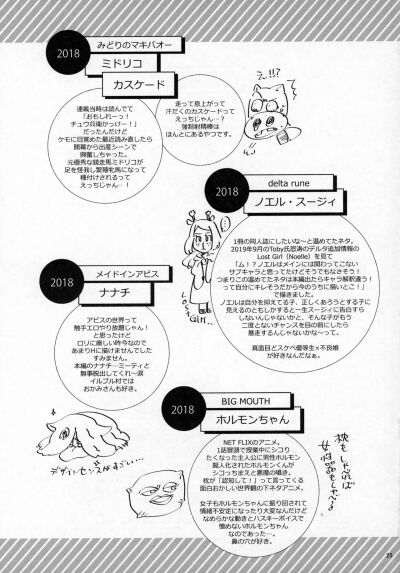 2018
みどりのマキバオー
ミドリコ
カスケード
連載当時は読んでて
「おもしれーっ！
チュウ兵衛かっけー！」
だったんだけど
ケモに目覚めた最近読み直したら
開幕から出産シーンで
興奮しちゃった。
元優秀な競走馬ミドリコが
足を怪我し繁殖牝馬になって
種付けされるって
えっちじゃん…！
走って息上がって
汗だくのカスケード
えっちじゃん…？
強制射精棒は
ほんとにあるやつです。
え!!?
2018
delta rune
ノエル・スージィ
1冊の同人誌にしたいな～と温めてたネタ。
2019年9月のToby氏怒涛のデルタ追加情報の
Lost Girl（Noelle）を見て
「ム！？ノエルはメインには関わってこない
サブキャラと思ってたけどそうでもなさそう！
つまりこの温めてたネタは本編出たらキャラ解釈違う！
って自分にキレそうだから今のうちに描いとこ！」
で描きました。
ノエルは自分を抑えてる子、正しくあろうとする子に
見えるのともしかすると一生スージィに告白すら
しないんじゃないかと、そんな子がもう
二度とないチャンスを目の前にしたら
暴走するんじゃないかな～って。
真面目どスケベ優等生×不良娘
が好きなんだなぁ。
LOST GIRL
2018
メイドインアビス
ナナチ
アビスの世界って
触手エロやり放題じゃん！
と思ったけど
ロリに厳しい昨今なので
あまりHに描けませんでした
すみません。
本編のナナチ・ミーティと
無事脱出してくれ～涙
イルブル村では
おかみさんも好き。
デザインセンスがすごい…
2018
BIG MOUTH
ホルモンちゃん
NET FLIXのアニメ。
1話冒頭で授業中にシコり
たくなった主人公に男性ホルモン
擬人化されたホルモンくんが
シコっちまえと悪魔の囁き。
枕が「認知して！」って言ってくる
面白おかしい世界観の下ネタアニメ。
女子もホルモンちゃんに振り回されて
情緒不安定になったり大変なんだけど
なめらかな動きとハスキーボイスで
憎めないホルモンちゃん
なのであった…。
鼻の穴が好き。
枕もしゃべれば
25